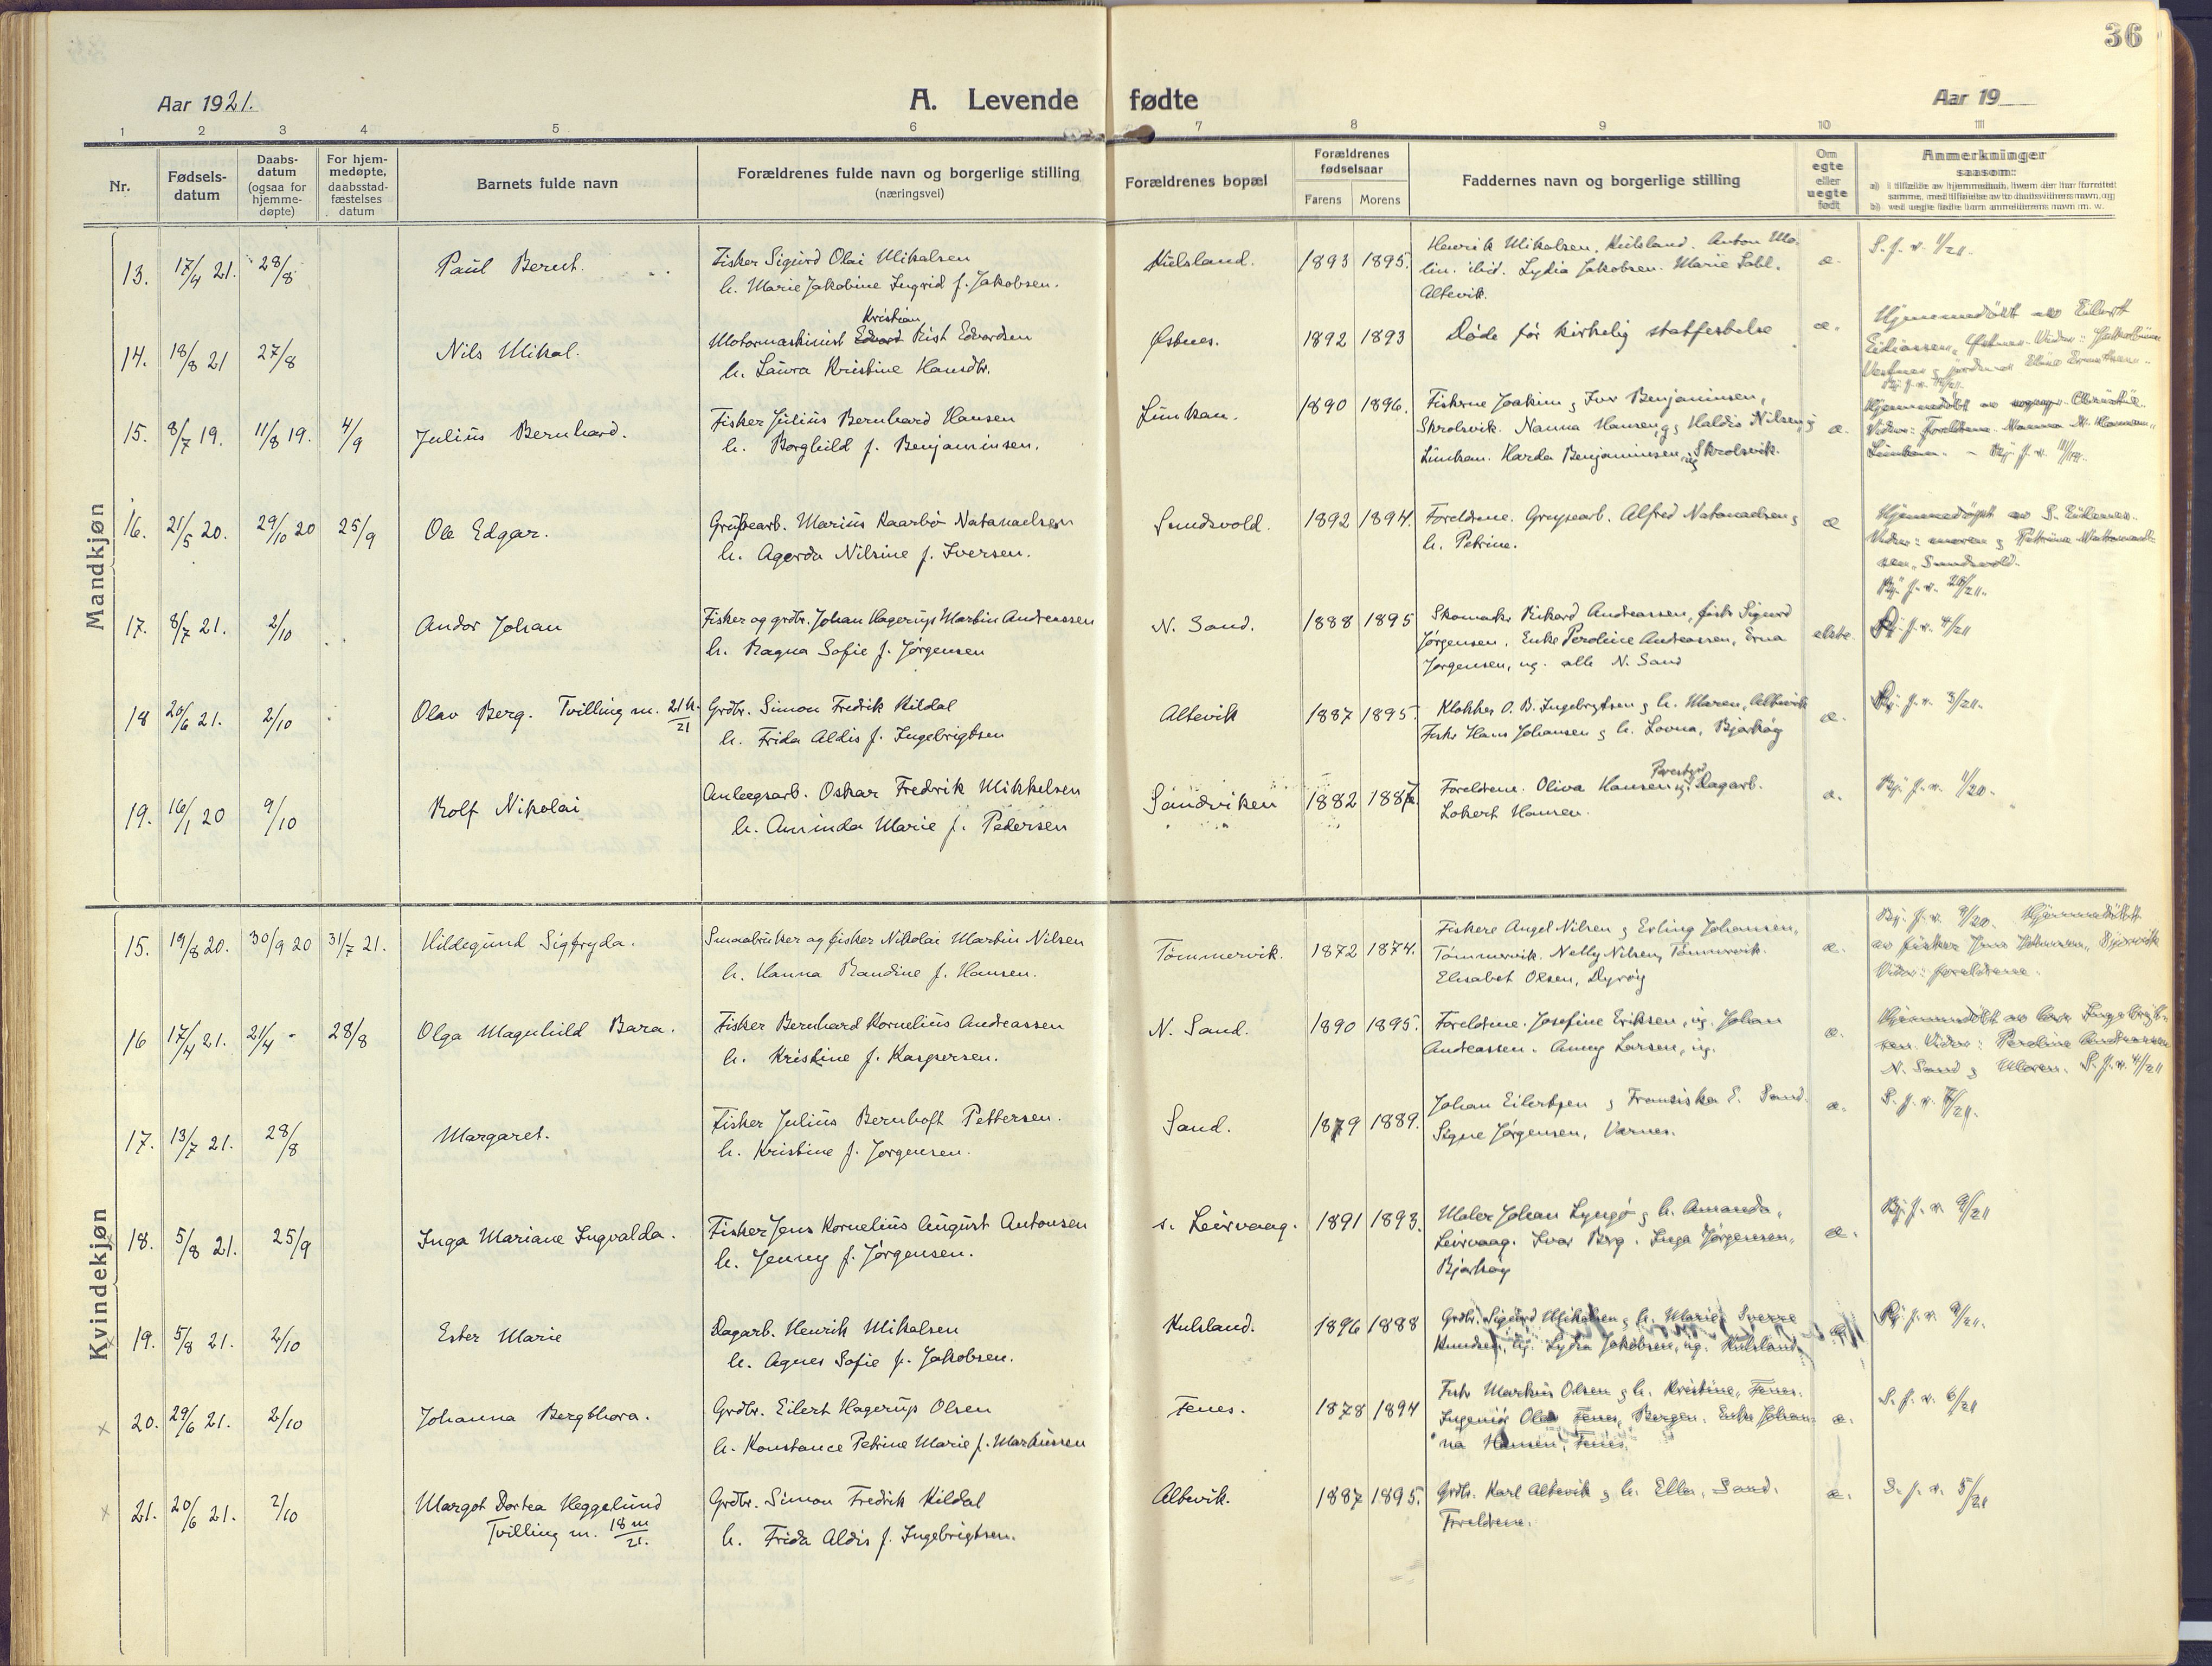 36
Aar 1921.
A. Levende fødte
Aar 19
1 2 3 4 5 6 7 8 9 10 11
Nr.
Fødselsdatum
Daabsdatum (ogsaa for hjemmedøpte)
For hjemmedøpte, daabsstadfæstelses datum
Barnets fulde navn
Forældrenes fulde navn og borgerlige stilling (næringsvei)
Forældrenes bopæl
Forældrenes fødselsaar
Farens Morens
Faddernes navn og borgerlige stilling
Om egte eller uegte født
Anmerkninger saasom:
Mandkjøn
13. 17/4 21. 28/8 Paul Bernt. Fisker Sigurd Olai Mikalsen Kulsland. 1893 1895. Henrik Mikalsen, Kulsland. Anton Mo- æ. S. f. v. 1/21.
h. Marie Jakobine Ingrid f. Jakobsen. lin. ibid. Lydia Jakobsen. Marie Dahl.
Altevik.
14. 18/8 21 27/8 Nils Mikal. Motormaskinist Edvard Kristian Rist Edvardsen Østnes. 1892 1893 Døde før kirkelig statfestelse æ. Hjemmedøbt av Eilert
h. Laura Kristine Hansdtr. Eidissen, Østnes. Vidner:
15. 8/7 19. 11/8 19. 4/9 Julius Bernhard. Fisker Julius Bernhard Hansen Lunkan. 1890 1896. Fiskerne Joakim og Ivar Benjaminsen, æ. Hjemmedøbt av
h. Borghild f. Benjaminsen. Skrolsvik. Nanna Hansen, og Haldis Nilsen, ug Vidner: foreldrene. Nanna M. Hansen,
Lunkan. Harda Benjaminsen, ug Skrolsvik. Lunkan.
16. 21/5 20. 29/10 20 25/9 Ole Edgar. Grubearb. Marius Kaarbø Natanaelsen Sundsvold. 1892 1894. Foreldrene. Grupearb. Alfred Natanaelsen og æ Hjemmedøpt av
h. Agerda Nilsine f. Iversen. h. Petrine. Vidner: moren og Petrine Natanael-
sen, Sundsvold.
17. 8/7 21. 2/10 Andor Johan Fisker og grdbr. Johan Hagerup Martin Andreassen N. Sand. 1888 1895 Skomaker Rikard Andreassen, fisker Sigurd ekte. Bj. f. v. 4/21
h. Ragna Sofie f. Jørgensen Jørgensen. Enke Peroline Andreassen, Erna
Jørgensen, ug. alle N. Sand
18 20/6 21. 2/10 Olav Berg. Tvilling m. 21 k./21 Grdbr. Simon Fredik Kildal Altevik 1887 1895. Klokker O. B. Ingebrigtsen og h. Maren, Altevik æ. Bj. f. v. 3/21.
h. Frida Aldis f. Ingebrigtsen Fisker Hans Johansen og h. Lovna, Bjarkøy
19. 16/1 20 9/10 Rolf Nikolai Anlegsarb. Oskar Fredrik Mikkelsen Sandviken 1882 1887. Foreldrene. Oliva Hansen ug. Dagarb. æ. Bj. f. v. 1/20.
h. Aminda Marie f. Pedersen Lokert Hansen.
Kvindekjøn
15. 19/8 20. 30/9 20 31/7 21. Hildegund Sigfryda. Smaabruker og fisker Nikolai Martin Nilsen Tømmervik. 1872 1874. Fiskere Angel Nilsen og Erling Johansen, æ. Bj. f. v. 9/20. Hjemmedøbt
h. Hanna Randine f. Hansen. Tømmervik. Nelly Nilsen, Tømmervik. av fisker Jens Johansen,
Elisabet Olsen, Dyrøy Vidner: foreldrene.
16 17/4 21. 21/4 - 28/8 Olga Magnhild Bara. Fisker Bernhard Kornelius Andreassen N. Sand. 1890 1895. Foreldrene. Josefine Eriksen, ug. Johan æ. Hjemmedøbt av Ingebrigt-
h. Kristine f. Kaspersen. Andreassen. Anny Larsen, ug. sen. Vidner: Peroline Andreassen
N. Sand og Moren. S. f. v. 4/21
17. 13/7 21. 28/8 Margaret. Fisker Julius Bernhoft Pettersen. Sand. 1879 1889. Johan Eilertsen og Fransiska E. Sand. æ.
h. Kristine f. Jørgensen. Signe Jørgensen, Varnes.
18. 5/8 21. 25/9 Inga Mariane Ingvalda. Fisker Jens Kornelius August Antonsen s. Leirvaag. 1891 1893. Maler Johan Lyngø og h. Amanda, æ. Bj. f. v. 9/21
h. Jenny f. Jørgensen. Leirvaag. Ivar Berg. Inga Jørgensen,
Bjarkøy
19. 5/8 21. 2/10 Ester Marie Dagarb. Henrik Mikalsen Kulsland. 1896 1888 Grdbr. Sigurd Mikalsen og h. Marie. Sverre Bj. f. v. 9/21.
h. Agnes Sofie f. Jakobsen. Knudsen, ug. Lydia Jakobsen, ug. Kulsland.
x 20. 29/6 21. 2/10 Johanna Bergthora. Grdbr. Eilert Hagerup Olsen Fenes. 1878 1894 Fisker Markus Olsen og h. Kristine, Fenes. æ. S. f. v. 6/21
h. Konstance Petrine Marie f. Markussen Ingeniør Olav Fenes, Bergen. Enke Johan-
na Hansen, Fenes.
x 21. 20/6 21. 2/10 Margot Dortea Heggelund Grdbr. Simon Fredrik Kildal Altevik. 1887 1895. Grdbr. Karl Altevik og h. Ella, Sand. æ. S. f. v. 5/21
Tvilling m. 18 m/21. h. Frida Aldis f. Ingebrigtsen. Foreldrene.